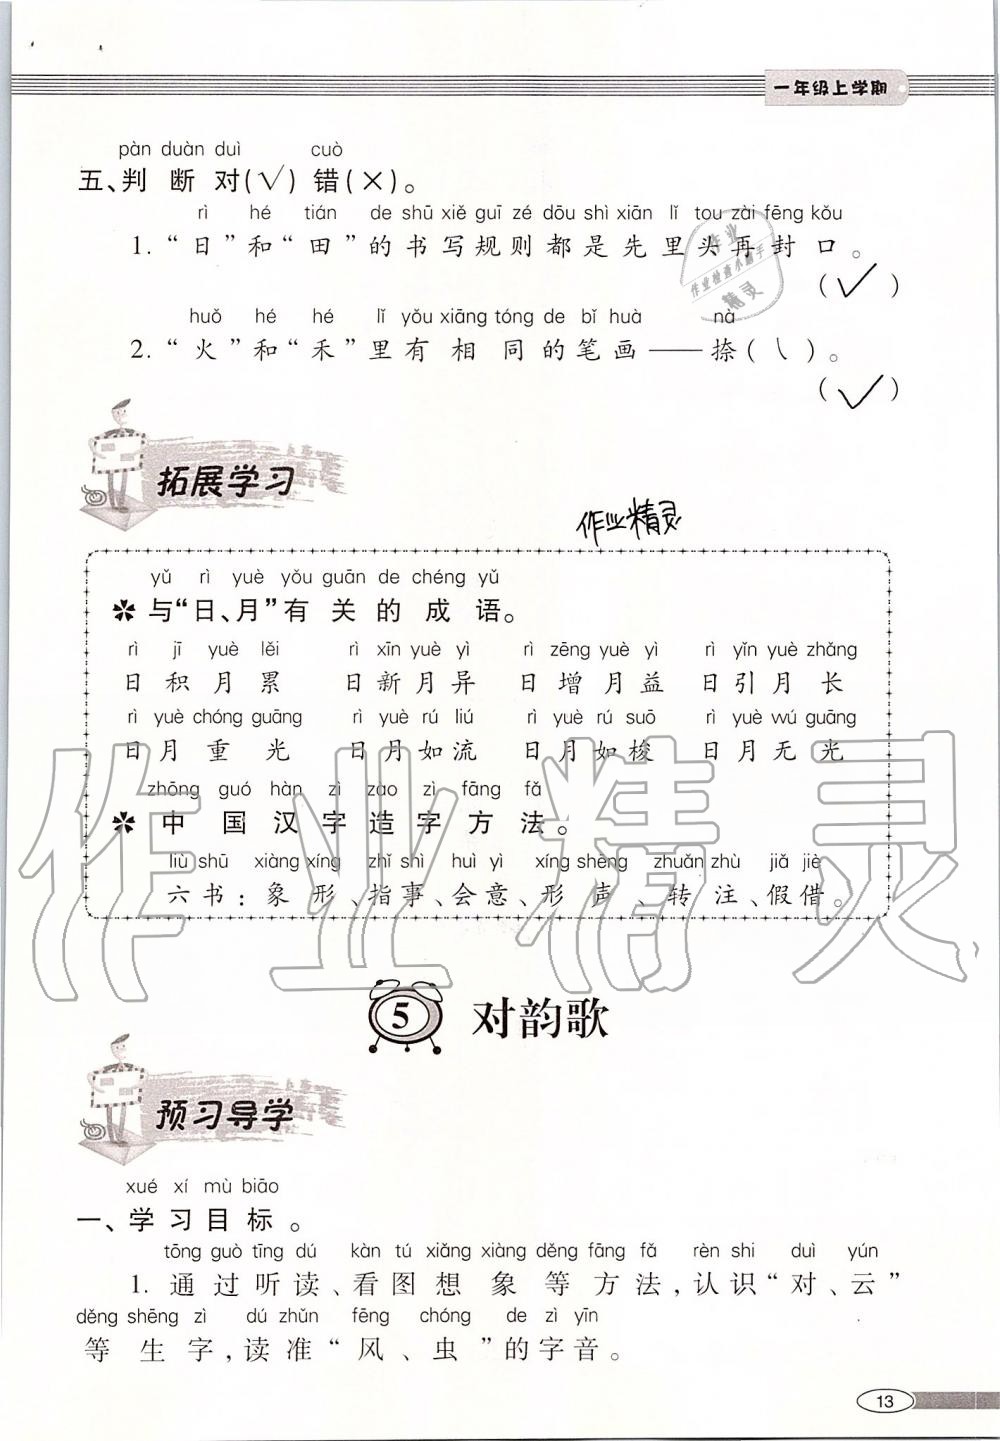 一年级上学期
pàn duàn duì cuò
五、判断对(√)错(×)。
rì hé tián de shū xiě guī zé dōu shì xiān lǐ tou zài fēng kǒu
1.“日”和“田”的书写规则都是先里头再封口。
(√)
huǒ hé hé lǐ yǒu xiāng tóng de bǐ huà nà
2.“火”和“禾”里有相同的笔画——捺(㇏)。
(√)
拓展学习
作业精灵
yǔ rì yuè yǒu guān de chéng yǔ
与“日、月”有关的成语。
rì jī yuè lěi rì xīn yuè yì rì zēng yuè yì rì yǐn yuè zhǎng
日积月累 日新月异 日增月益 日引月长
rì yuè chóng guāng rì yuè rú liú rì yuè rú suō rì yuè wú guāng
日月重光 日月如流 日月如梭 日月无光
zhōng guó hàn zì zào zì fāng fǎ
中国汉字造字方法。
liù shū xiàng xíng zhǐ shì huì yì xíng shēng zhuǎn zhù jiǎ jiè
六书：象形、指事、会意、形声、转注、假借。
作业精灵
5 对韵歌
预习导学
xué xí mù biāo
一、学习目标。
tōng guò tīng dú kàn tú xiǎng xiàng děng fāng fǎ rèn shi duì yún
1.通过听读、看图想象等方法,认识“对、云”
děng shēng zì dú zhǔn fēng chóng de zì yīn
等生字,读准“风、虫”的字音。
13